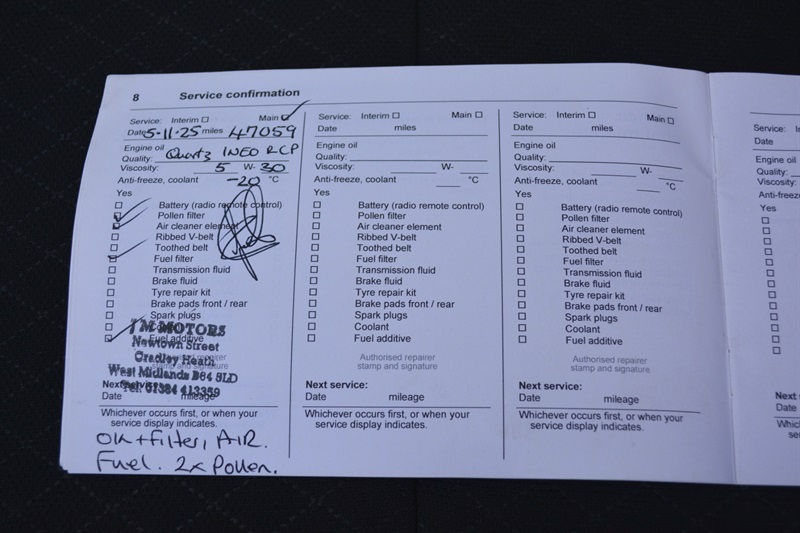 8 Service confirmation
Service: Interim ☐ Main ☑
Date 5-11-25 miles 47059
Engine oil
Quality: Quartz INEO RCP
Viscosity: 5 W- 30
Anti-freeze, coolant -20 °C
Yes
Battery (radio remote control)
Pollen filter
Air cleaner element
Ribbed V-belt
Toothed belt
Fuel filter
Transmission fluid
Brake fluid
Tyre repair kit
Brake pads front / rear
Spark plugs
Coolant
Fuel additive
Authorised repairer
stamp and signature
TM MOTORS
Newtown Street
Cradley Heath
West Midlands B64 5LD
Tel: 01384 413359
Next service:
Date mileage
Whichever occurs first, or when your
service display indicates.
Oil + Filter, AIR.
Fuel. 2x Pollen.
Service: Interim ☐ Main ☐
Date miles
Engine oil
Quality:
Viscosity: W-
Anti-freeze, coolant °C
Yes
Battery (radio remote control)
Pollen filter
Air cleaner element
Ribbed V-belt
Toothed belt
Fuel filter
Transmission fluid
Brake fluid
Tyre repair kit
Brake pads front / rear
Spark plugs
Coolant
Fuel additive
Authorised repairer
stamp and signature
Next service:
Date mileage
Whichever occurs first, or when your
service display indicates.
Service: Interim ☐ Main ☐
Date miles
Engine oil
Quality:
Viscosity: W-
Anti-freeze, coolant °C
Yes
Battery (radio remote control)
Pollen filter
Air cleaner element
Ribbed V-belt
Toothed belt
Fuel filter
Transmission fluid
Brake fluid
Tyre repair kit
Brake pads front / rear
Spark plugs
Coolant
Fuel additive
Authorised repairer
stamp and signature
Next service:
Date mileage
Whichever occurs first, or when your
service display indicates.
Service:
Date
Engine oil
Quality:
Viscosity:
Anti-freeze
Yes
Next
Date